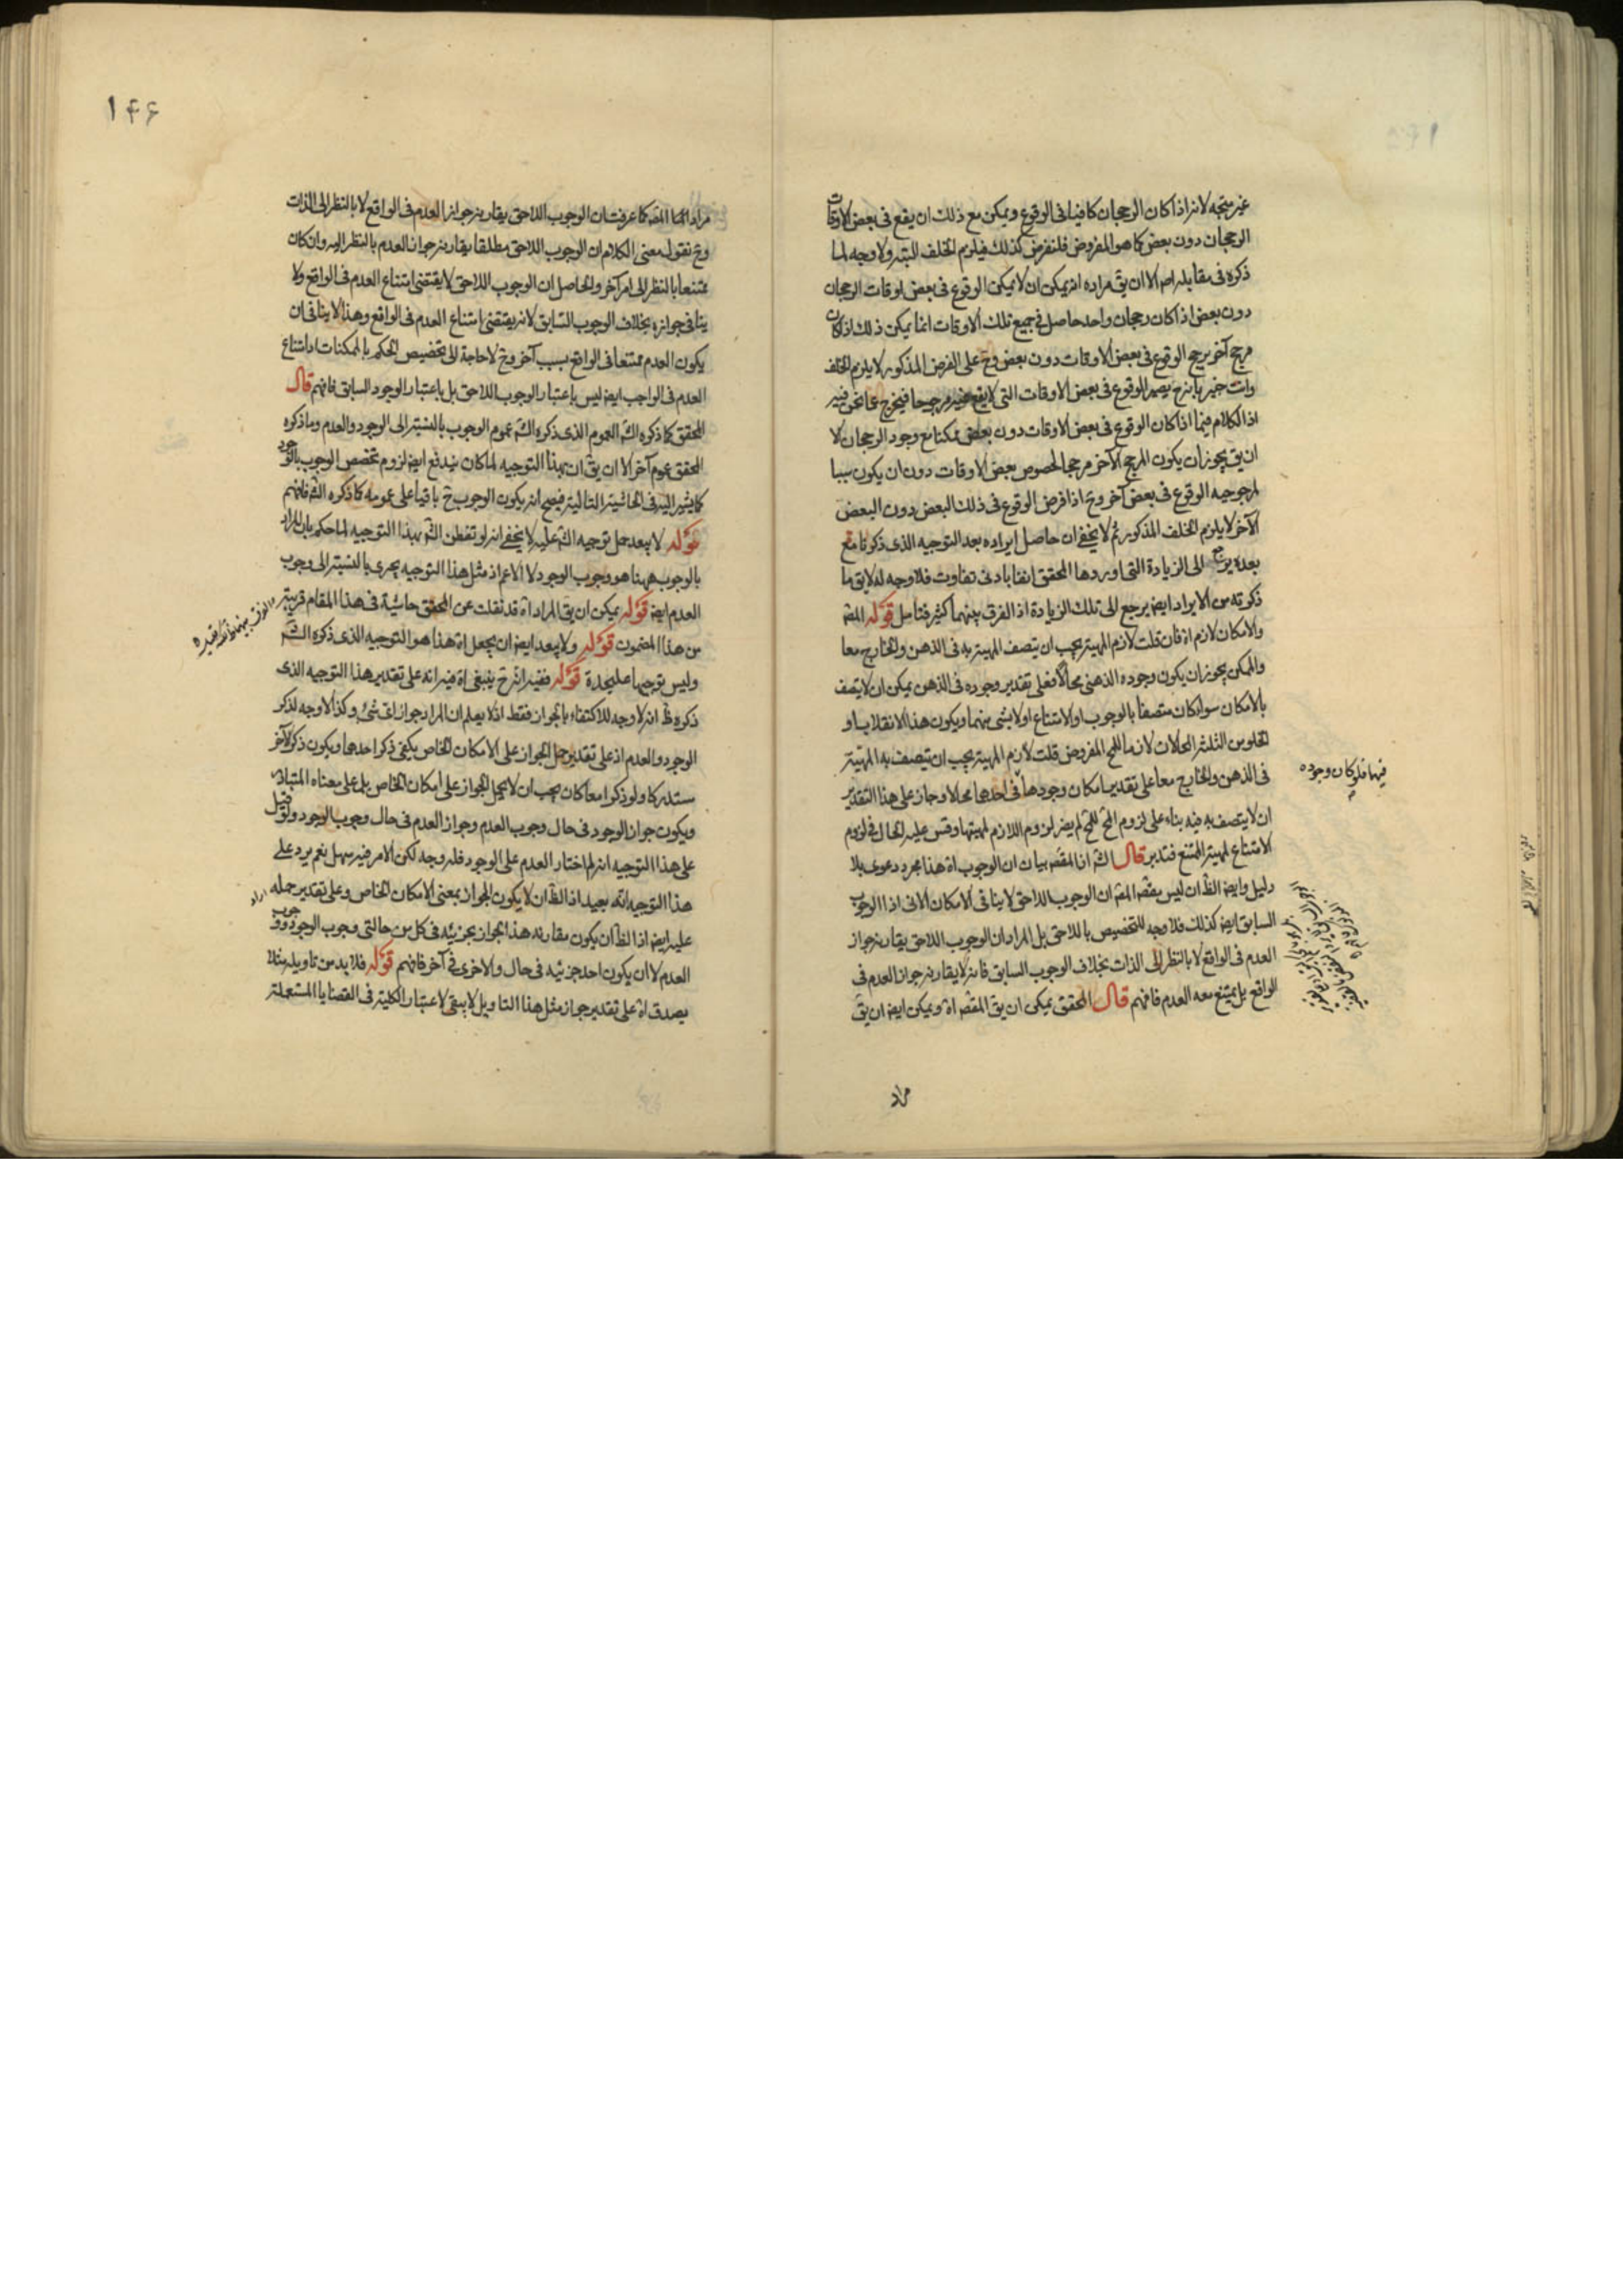 غير متجه لانه اذا كان الرجحان كافيا فى الوقوع ويمكن مع ذلك ان يقع فى بعض الاوقات
الرجحان دون بعض كما هو المفروض فلنفرض كذلك فيلزم الخلف البته ولا وجه لما
ذكره فى مقابله اصلا الا ان يق مراده انه يمكن ان لا يمكن الوقوع فى بعض اوقات الرجحان
دون بعض اذا كان رجحان واحد حاصل فى جميع تلك الاوقات انما يمكن ذلك اذا كان
مرجح آخر يرجح الوقوع فى بعض الاوقات دون بعض وح على الفرض المذكور لا يلزم الخلف
وانت خبير بانه ح يصير الوقوع فى بعض الاوقات التى لا يقع فيه مرجوحا فيخرج عما نحن فيه
اذ الكلام فيما اذا كان الوقوع فى بعض الاوقات دون بعض ممكنا مع وجود الرجحان لا
ان يق يجوز ان يكون المرجح الآخر مرجحا لخصوص بعض الاوقات دون ان يكون سببا
لمرجوحيه الوقوع فى بعض آخر وح اذا فرض الوقوع فى ذلك البعض دون البعض
الآخر لا يلزم الخلف المذكور ثم لا يخفى ان حاصل ايراده بعد التوجيه الذى ذكرنا مع
بعده يرجع الى الزيادة التى اوردها المحقق آنفا بادنى تفاوت فلا وجه له لا يق ما
ذكرته من الايراد ايضا يرجع الى تلك الزيادة اذ الفرق بينهما كثير فتامل قوله المص
والامكان لازم اه فان قلت لازم المهية يجب ان يتصف المهية به فى الذهن والخارج معا
والممكن يجوز ان يكون وجوده الذهنى محالا فعلى تقدير وجوده فى الذهن يمكن ان لا يتصف
بالامكان سواء كان متصفا بالوجوب او الامتناع او لا بشى منهما ويكون هذا الانقلاب او
الخلو من الثلثة المحالات لازما للمح المفروض قلت لازم المهية يجب ان يتصف به المهية
فى الذهن والخارج معا على تقدير امكان وجودها فى احدهما محالا وجاز على هذا التقدير
فيهما فلو كان وجوده
ان لا يتصف به فيه بناء على لزوم المح للمح لم يضر لزوم اللازم لمهيتها وقس عليه الحال فى لزوم
الامتناع لمهية الممتنع فتدبر قال الش انا المقصه بيان ان الوجوب اه هذا مجرد دعوى بلا
دليل وايضا الظ ان ليس مقصه المص ان الوجوب اللاحق لا ينافى الامكان الا فى اذا الوجوب
السابق ايضا كذلك فلا وجه للتخصيص باللاحق بل المراد ان الوجوب اللاحق يقارنه جواز
العدم فى الواقع لا بالنظر الى الذات بخلاف الوجوب السابق فانه لا يقارنه جواز العدم فى
الواقع بل يمتنع معه العدم فافهم قال المحقق يمكن ان يق المقص اه ويمكن ايضا ان يق
مراد
١۴۶
مراد المص كما عرفت ان الوجوب اللاحق يقارنه جواز العدم فى الواقع لا بالنظر الى الذات
وح نقول معنى الكلام ان الوجوب اللاحق مطلقا يقارنه جواز العدم بالنظر اليه وان كان
ممتنعا بالنظر الى امر آخر والحاصل ان الوجوب اللاحق لا يقتضى امتناع العدم فى الواقع ولا
ينافى جوازه بخلاف الوجوب السابق لانه يقتضى امتناع العدم فى الواقع وهذا لا ينافى ان
يكون العدم ممتنعا فى الواقع بسبب آخر وح لا حاجة الى تخصيص الحكم بالممكنات اذ امتناع
العدم فى الواجب ايضا ليس باعتبار الوجوب اللاحق بل باعتبار الوجود السابق فافهم قال
المحقق كما ذكره الش العموم الذى ذكره الش عموم الوجوب بالنسبة الى الوجود والعدم وما ذكره
المحقق عموم آخر الا ان يق ان بهذا التوجيه لما كان يندفع ايضا لزوم تخصص الوجوب بالوجود
كما يشير اليه فى الحاشية التالية فيصح انه يكون الوجوب ح باقيا على عمومه كما ذكره الش فافهم
قوله لا يبعد حمل توجيه الش عليه لا يخفى انه لو تفطن الش بهذا التوجيه لما حكم بان المراد
بالوجوب ههنا هو وجوب الوجود لا الاعم اذ مثل هذا التوجيه يجرى بالنسبة الى وجوب
العدم ايضا قوله يمكن ان يق المراد اه قد نقلت عن المحقق حاشية فى هذا المقام قريبة
من هذا المضمون قوله ولا يبعد ايضا ان يجعل اه هذا هو التوجيه الذى ذكره الش
وليس توجيها عليحدة قوله ففيه انه ح ينبغى اه فيه انه على تقدير هذا التوجيه الذى
ذكره ظ انه لا وجه للاكتفاء بالجواز فقط اذ لا يعلم ان المراد جواز اى شئ وكذا لا وجه لذكر
الوجود والعدم اذ على تقدير حمل الجواز على الامكان الخاص يكفى ذكر احدهما ويكون ذكر الآخر
مستدركا ولو ذكرا معا كان يجب ان لا يحمل الجواز على امكان الخاص بل على معناه المتبادر
ويكون جواز الوجود فى حال وجوب العدم وجواز العدم فى حال وجوب الوجود ولو قيل
على هذا التوجيه انه لم اختار العدم على الوجود فله وجه لكن الامر فيه سهل نعم يرد على
هذا التوجيه انه بعيد اذ الظ ان لا يكون الجواز بمعنى الامكان الخاص وعلى تقدير حمله
عليه ايضا اذ الظ ان يكون مقارنه هذا الجواز بجزئيه فى كل من حالتى وجوب الوجود ووجوب
العدم لا ان يكون احد جزئيه فى حال والاخرى فى آخر فافهم قوله فلا بد من تاويله مثلا
يصدق اه على تقدير جواز مثل هذا التاويل لا يبقى لاعتبار الكلية فى القضايا المستعملة